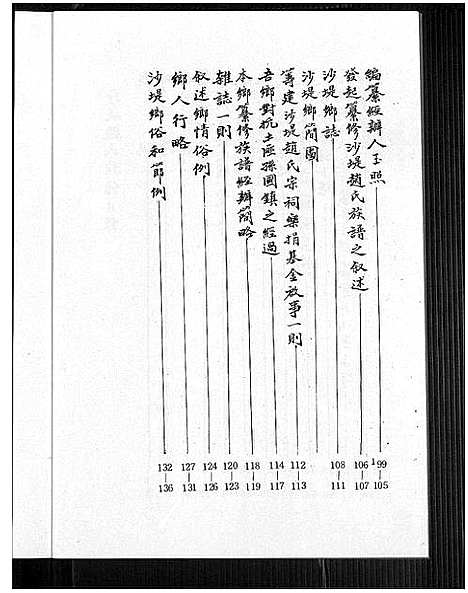 編纂經辦人玉照 199—105
發起纂修沙堤趙氏族譜之叙述 106—107
沙堤鄉誌 108—111
沙堤鄉簡圖
籌建沙堤趙氏宗祠樂捐基金啟事一則 112—113
吾鄉對抗土匪孫國鎮之經過 114—117
本鄉纂修族譜經辦簡略 118—119
雜誌一則 120—123
叙述鄉情俗例 124—126
鄉人行略 127—131
沙堤鄉俗和節例 132—136